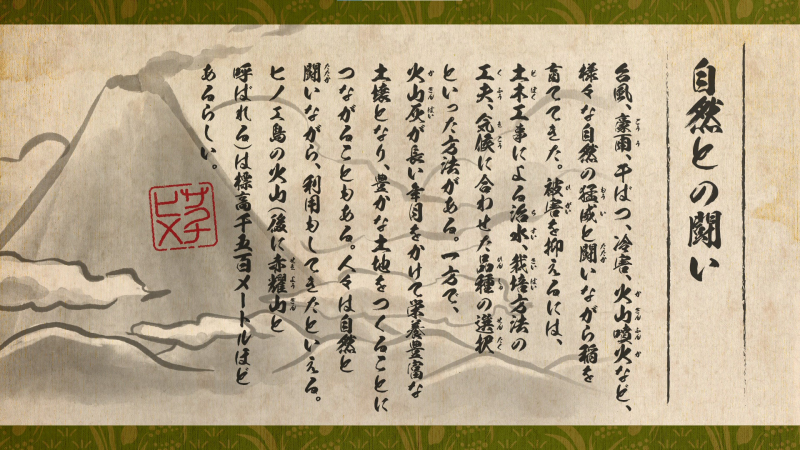 自然との闘い
台風、豪雨、干ばつ、冷害、火山噴火など、
様々な自然の猛威と闘いながら稲を
育ててきた。被害を抑えるには、
土木工事による治水、栽培方法の
工夫、気候に合わせた品種の選択
といった方法がある。一方で、
火山灰が長い年月をかけて栄養豊富な
土壌となり、豊かな土地をつくることに
つながることもある。人々は自然と
闘いながら、利用もしてきたといえる。
ヒノエ島の火山(後に赤耀山と
呼ばれる)は標高千五百メートルほど
あるらしい。
サクナ
ヒメ